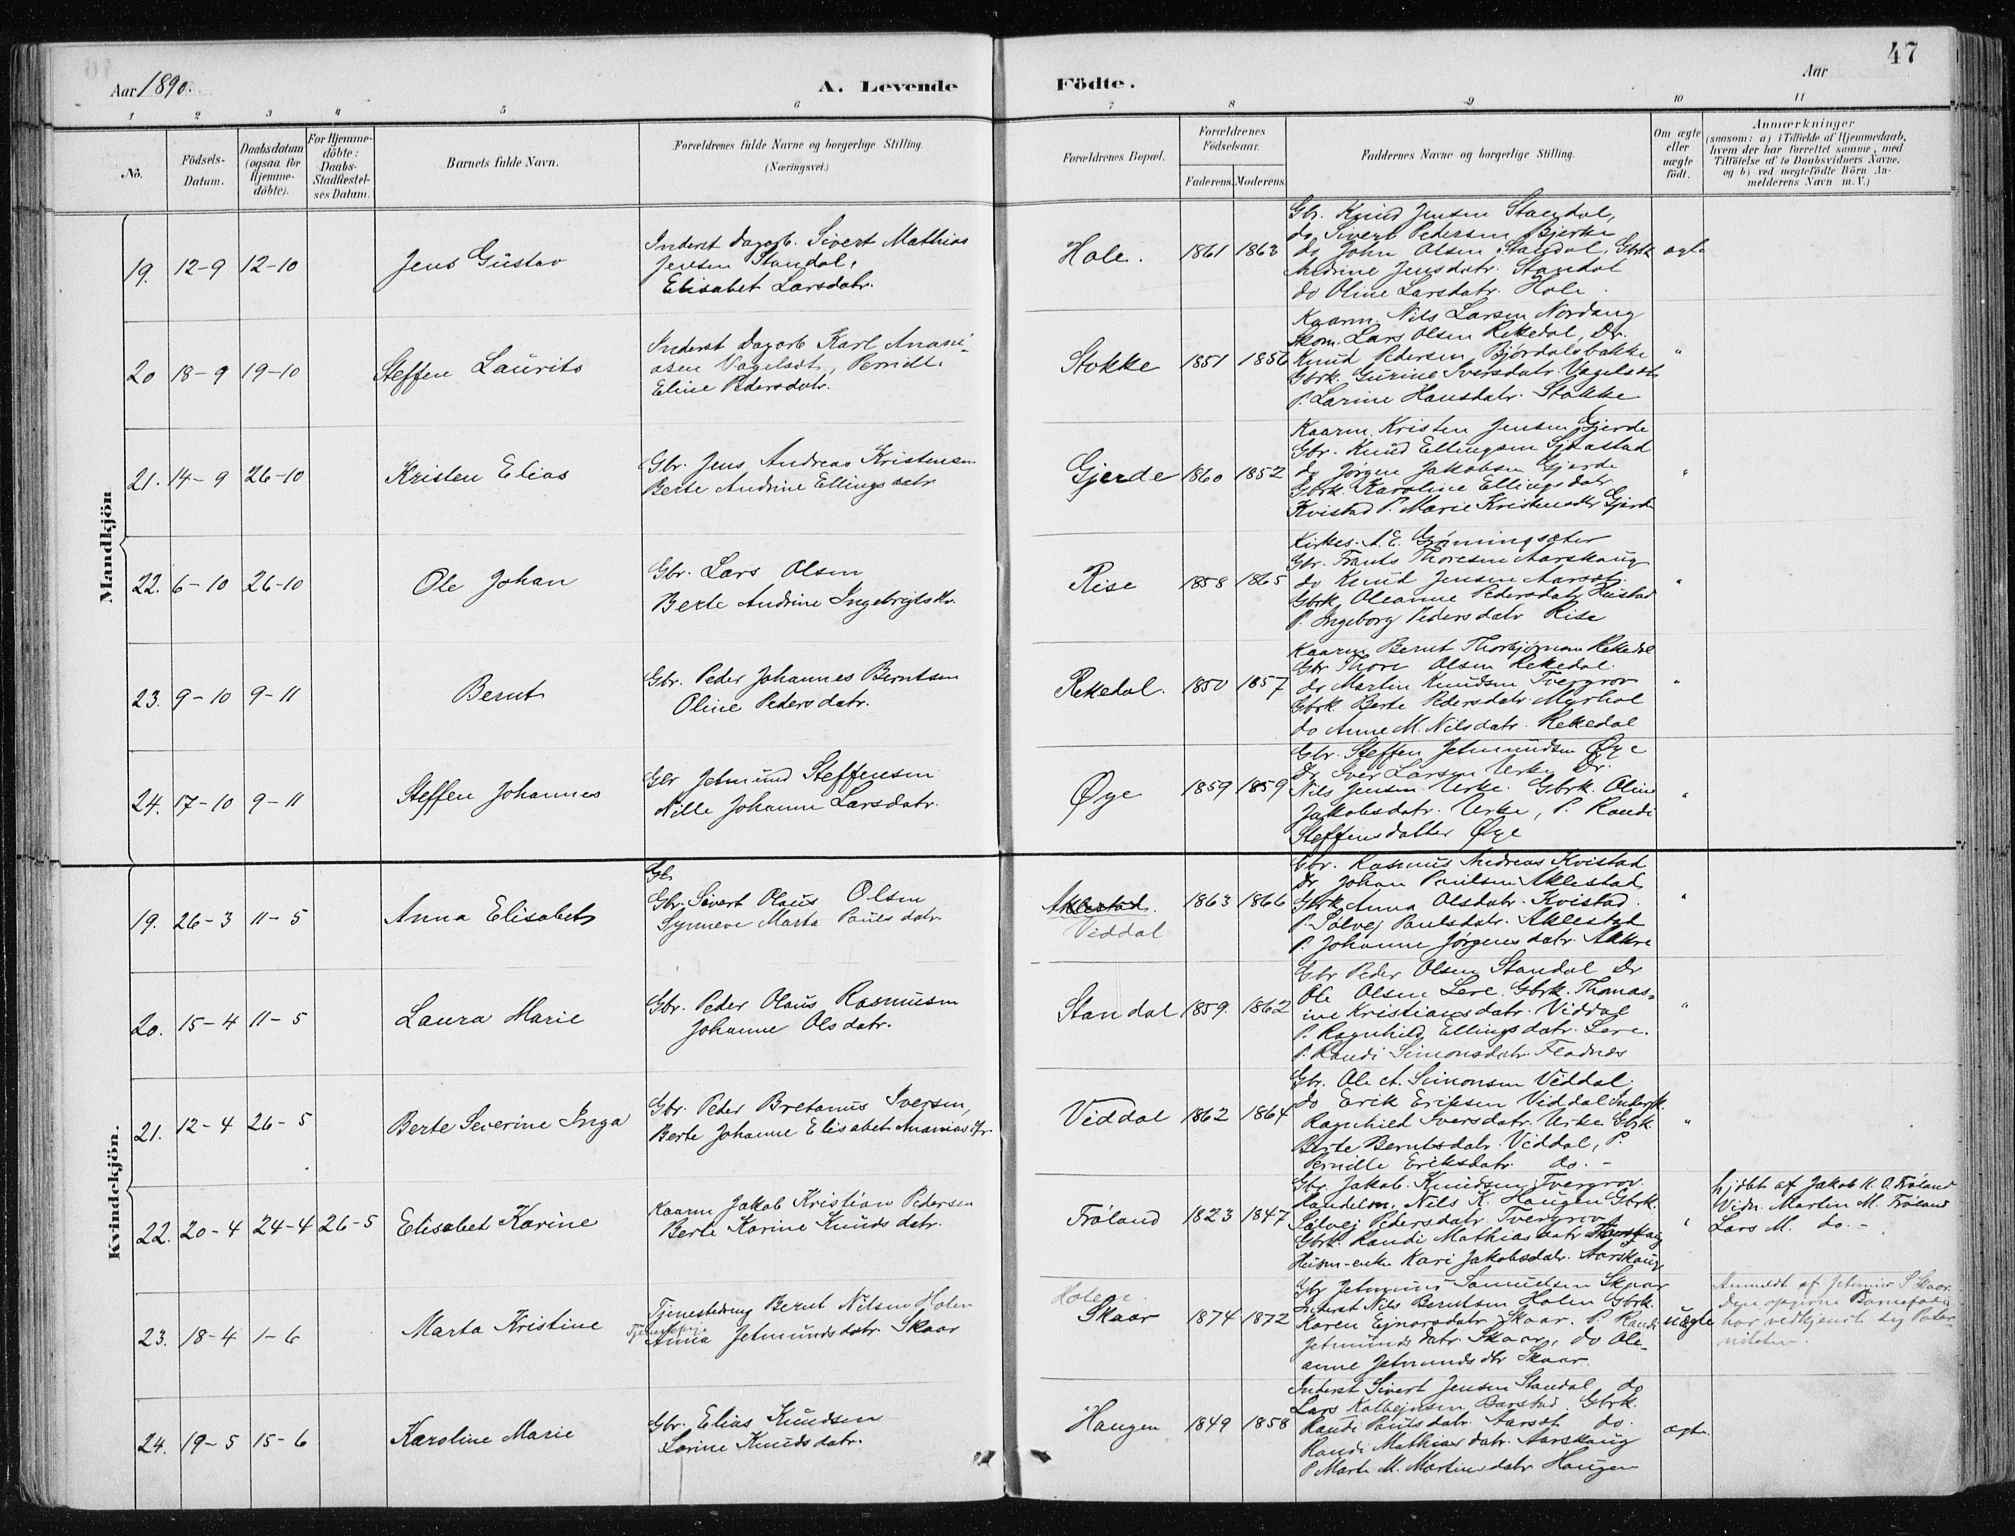 47
Aar 1890.
A. Levende Födte.
Aar
1 2 3 4 5 6 7 8 9 10 11
No.
Födsels-Datum.
Daabsdatum (ogsaa for Hjemme-döbte).
For Hjemme-döbte: Daabs-Stadfæstel-ses Datum.
Barnets fulde Navn.
Forældrenes fulde Navne og borgerlige Stilling. (Næringsvei.)
Forældrenes Bopæl.
Forældrenes Födselsaar.
Faderens. Moderens.
Faddernes Navne og borgerlige Stilling.
Om ægte eller uægte födt.
Anmærkninger
(saasom: a) i Tilfælde af Hjemmedaab,
hvem der har forrettet samme, med
Tilföielse af to Daabsvidners Navne.
og b) ved uægtefödte Börn An-
melderens Navn m. V.)
Mandkjön
19. 12-9 12-10
Jens Gustav
Inderst Dagarb. Sivert Mathias
Jensen Standal,
Elisabet Larsdatr.
Hole.
1861 1863
Gbr. Knud Jensen Standal,
do Sivert Pedersen Bjerke
do John Olsen Standal, Gbrk
Andrine Jensdatr. Standal
do Oline Larsdatr. Hole.
ægte
20 18-9 19-10
Steffen Laurits
Inderst Dagarb Karl Anani-
asen Vagelsdt, Pernille
Eline Pedersdatr.
Stokke
1851 1856
Kaarm. Nils Larsen Nordang
Skom. Lars Olsen Rekkedal, Dr.
Knud Pedersen Bjørdalsbakke
Gbrk. Gurine Iversdatr. Vagelsdt
P. Larine Hansdatr. Stokke
"
21. 14-9 26-10
Kristen Elias
Gbr. Jens Andreas Kristensen
Berte Andrine Ellingsdatr
Gjerde
1860 1852
Kaarm. Kristen Jensen Gjerde
Gbr. Knud Ellingsen
do Jørgen Jakobsen Gjerde
Gbrk. Karoline Ellingsdatr
Kvistad P. Marie Kristensdtr Gjerde
"
22. 6-10 26-10
Ole Johan
Gbr. Lars Olsen
Berte Andrine Ingebrigtsdr.
Rise
1858 1865
Kirkes. A. E. Grønningsæter
Gbr. Frants Thoresen Aarskaug
do Knud Jensen Aarsdt.
Gbrk. Oleanne Pedersdatr Hustad
P. Ingeborg Pedersdatr Rise
"
23. 9-10 9-11
Bernt
Gbr. Peder Johannes Berntsen
Oline Pedersdatr.
Rekedal.
1850 1857
Kaarm Bernt Thorbjørnsen Rekedal
Gbr Thore Olsen Rekedal.
do Martin Knudsen Tvergrov
Gbrk. Berte Pedersdatr Myrhol
do Anne M. Nilsdatr. Rekedal
"
24. 17-10 9-11
Steffen Johannes
Gbr Jetmund Steffensen
Nille Johanne Larsdatr.
Øye
1859 1859
Gbr. Steffen Jetmundsen Øye
Dr. Iver Larsen Urke Dr.
Nils Jensen Urke. Gbrk. Oline
Jakobsdatr. Urke, P. Randi
Steffensdatter Øye
"
Kvindekjön.
19. 26-3 11-5
Anna Elisabet
Gb
Gbr. Sivert Olaus Olsen
Synneve Marta Paulsdatr.
Aklestad.
Viddal
1863 1866
Gbr. Rasmus Andreas Kvistad
Dr. Johan Paulsen Aklestad
Gbrk Anna Olsdatr. Kvistad.
P. Sølvej Paulsdatr. Aklestad
P. Johanne Jørgensdatr. Akkre
"
20. 15-4 11-5
Laura Marie
Gbr. Peder Olaus Rasmusen
Johanne Olsdatr.
Standal
1859. 1862
Gbr Peder Olsen Standal Dr
Ole Olsen Lere. Gbrk. Thomas-
ine Kristiansdatr. Viddal
P. Ragnhild Ellingsdatr. Lere.
P. Randi Simonsdatr. Fladnæs
"
21. 12-4 26-5
Berte Severine Inga
Gbr. Peder Bretanus Iversen,
Berte Johanne Elisabet Ananiasdtr.
Viddal
1862 1864
Gbr. Ole A. Simonsen Viddal
do Erik Eriksen Viddal Inderstk.
Ragnhild Iversdatr. Urke Gbrk.
Berte Berntsdatr. Viddal, P.
Pernille Eriksdatr. do. -
"
22. 20-4 24-4 26-5
Elisabet Karine
Kaarm Jakob Kristian Pedersen
Berte Karine Knudsdatr.
Frøland
1823 1847
Gbr. Jakob Knudsen Tvergrov
Handelsm. Nils K. Haugen Gbrk.
Sølvej Pedersdatr. Tvergrov
Gbrk. Randi Mathiasdatr Aarskaug
Husm-enke Kari Jakobsdatr. Aarskaug
"
hjdbt af Jakob K. O. Frøland
Vidn. Martin M. Frøland
Lars M. do. -
23. 18-4 1-6
Marta Kristine
Tjenestedreng Bernt Nilsen Holen
Tjenestepige
Anna Jetmundsdatr. Skaar
Holen.
Skaar
1874 1872
Gbr Jetmund Samuelsen Skaar
Inderst Nils Berntsen Holen Gbrk.
Karen Ejnarsdatr. Skaar. P. Randi
Jetmundsdatr. Skaar, do Ole-
anne Jetmundsdtr Skaar.
uægte
Anmeldt af Jetmund S. Skaar.
den opgivne Barnefader
har vedkjendt sig Pater-
niteten.
24. 19-5 15-6
Karoline Marie
Gbr. Elias Knudsen
Larine Knudsdatr.
Haugen
1849 1858
Inderst Sivert Jensen Standal, do
Lars Kolbejnsen Barstad. Gbrk.
Randi Paulsdatr. Aarsdt do.
Randi Mathiasdatr. Aarskaug
P. Marte M. Martinsdatr. Haugen
ægte.